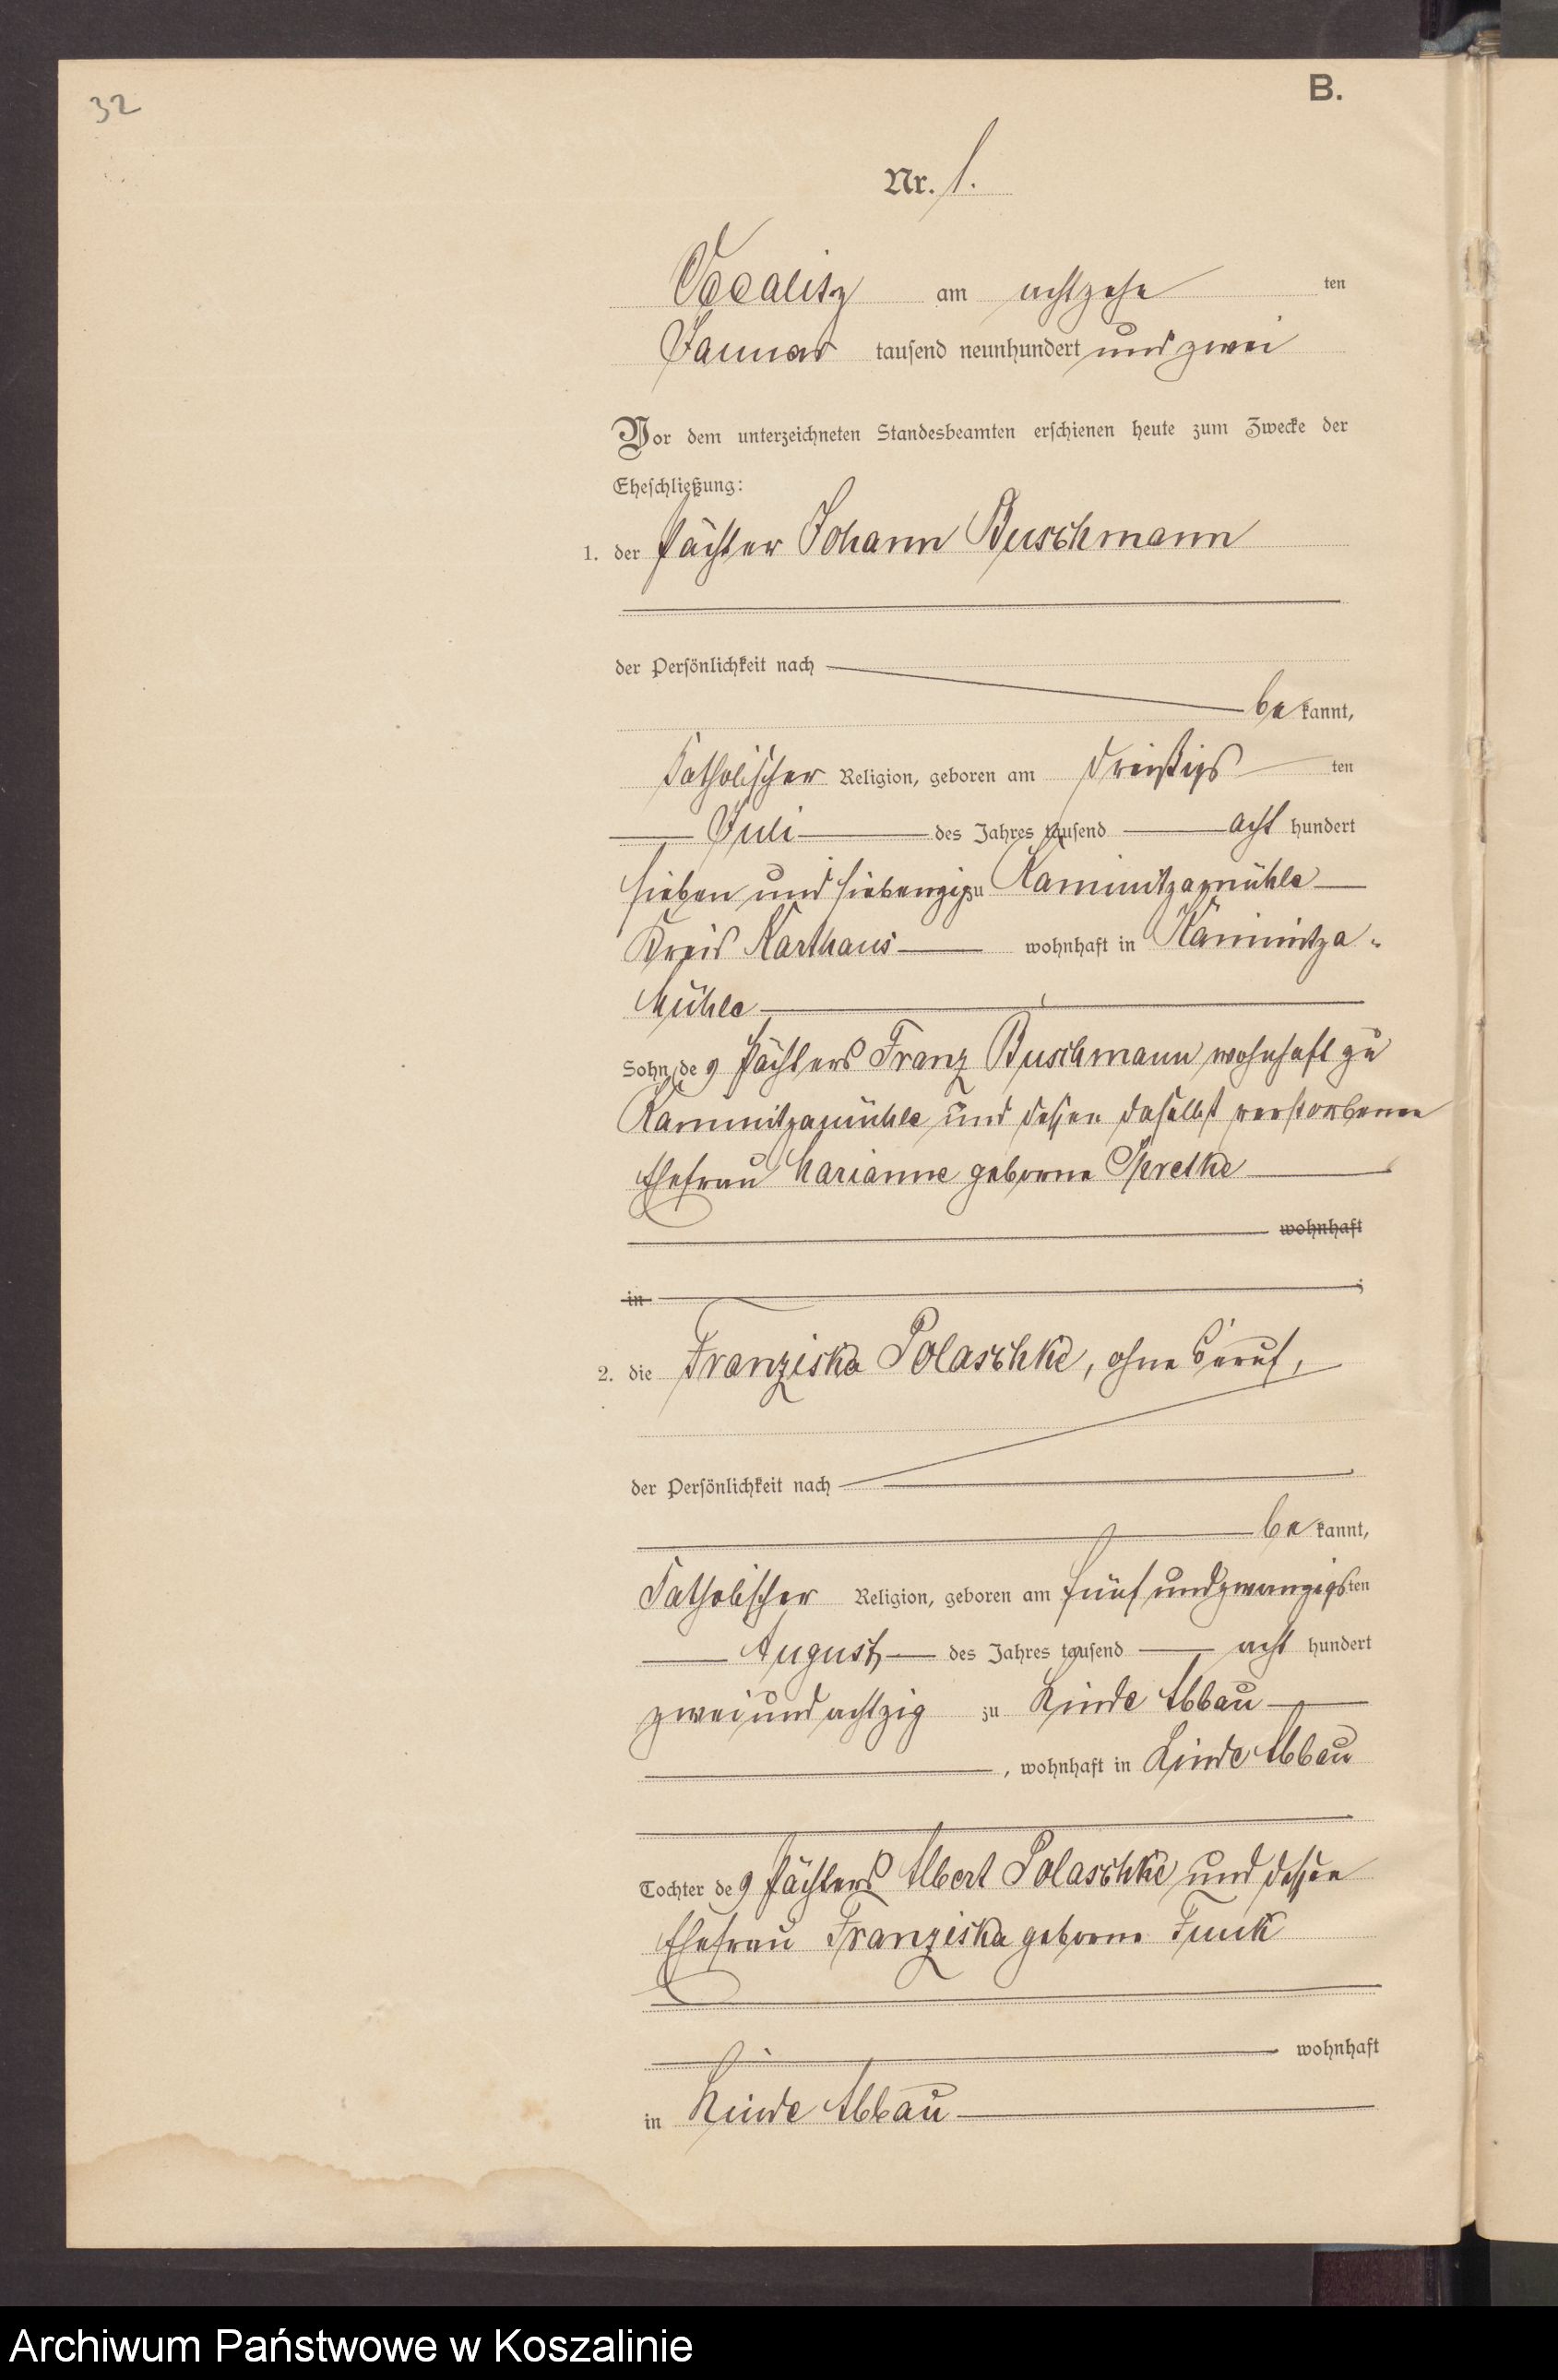 32
B.
Nr. 1.
am achtzehn ten
Januar tausend neunhundert und zwei
Vor dem unterzeichneten Standesbeamten erschienen heute zum Zwecke der
Eheschließung:
1. der Pächter Johann Buschmann
der Persönlichkeit nach
be kannt,
katholischer Religion, geboren am dreißigs ten
Juli des Jahres tausend acht hundert
sieben und siebenzig zu Kaminitzamühle
Kreis Karthaus wohnhaft in Kaminitza-
Mühle
Sohn des Pächters Franz Buschmann wohnhaft zu
Kaminitzamühle und dessen daselbst verstorbenen
Ehefrau Marianne geborne
wohnhaft
in ;
2. die Franziska Polaschke, ohne Beruf,
der Persönlichkeit nach
be kannt,
katholischer Religion, geboren am fünfundzwanzigsten
August des Jahres tausend acht hundert
zweiundachtzig zu Linde Abbau
, wohnhaft in Linde Abbau
Tochter des Pächters Albert Polaschke und dessen
Ehefrau Franziska geborne Funk
wohnhaft
in Linde Abbau
Archiwum Państwowe w Koszalinie